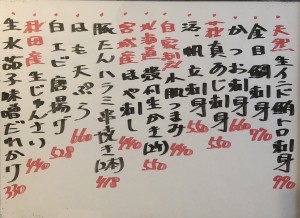 天然 生インド鮪トロ刺身 990
金目鯛刺身 770
かつお刺身 660
萩 真あじ刺身 550
活 帆立刺身 550
自家製 つまみ 440
北海道 殻付生かき(2ケ) 550
宮城産 ほや刺し 440
豚たんハラミ串焼き(2本) 418
はも天ぷら 660
白エビ唐揚げ 528
秋田産 生じゅんさい 440
生水茄子味噌だれかけ 330